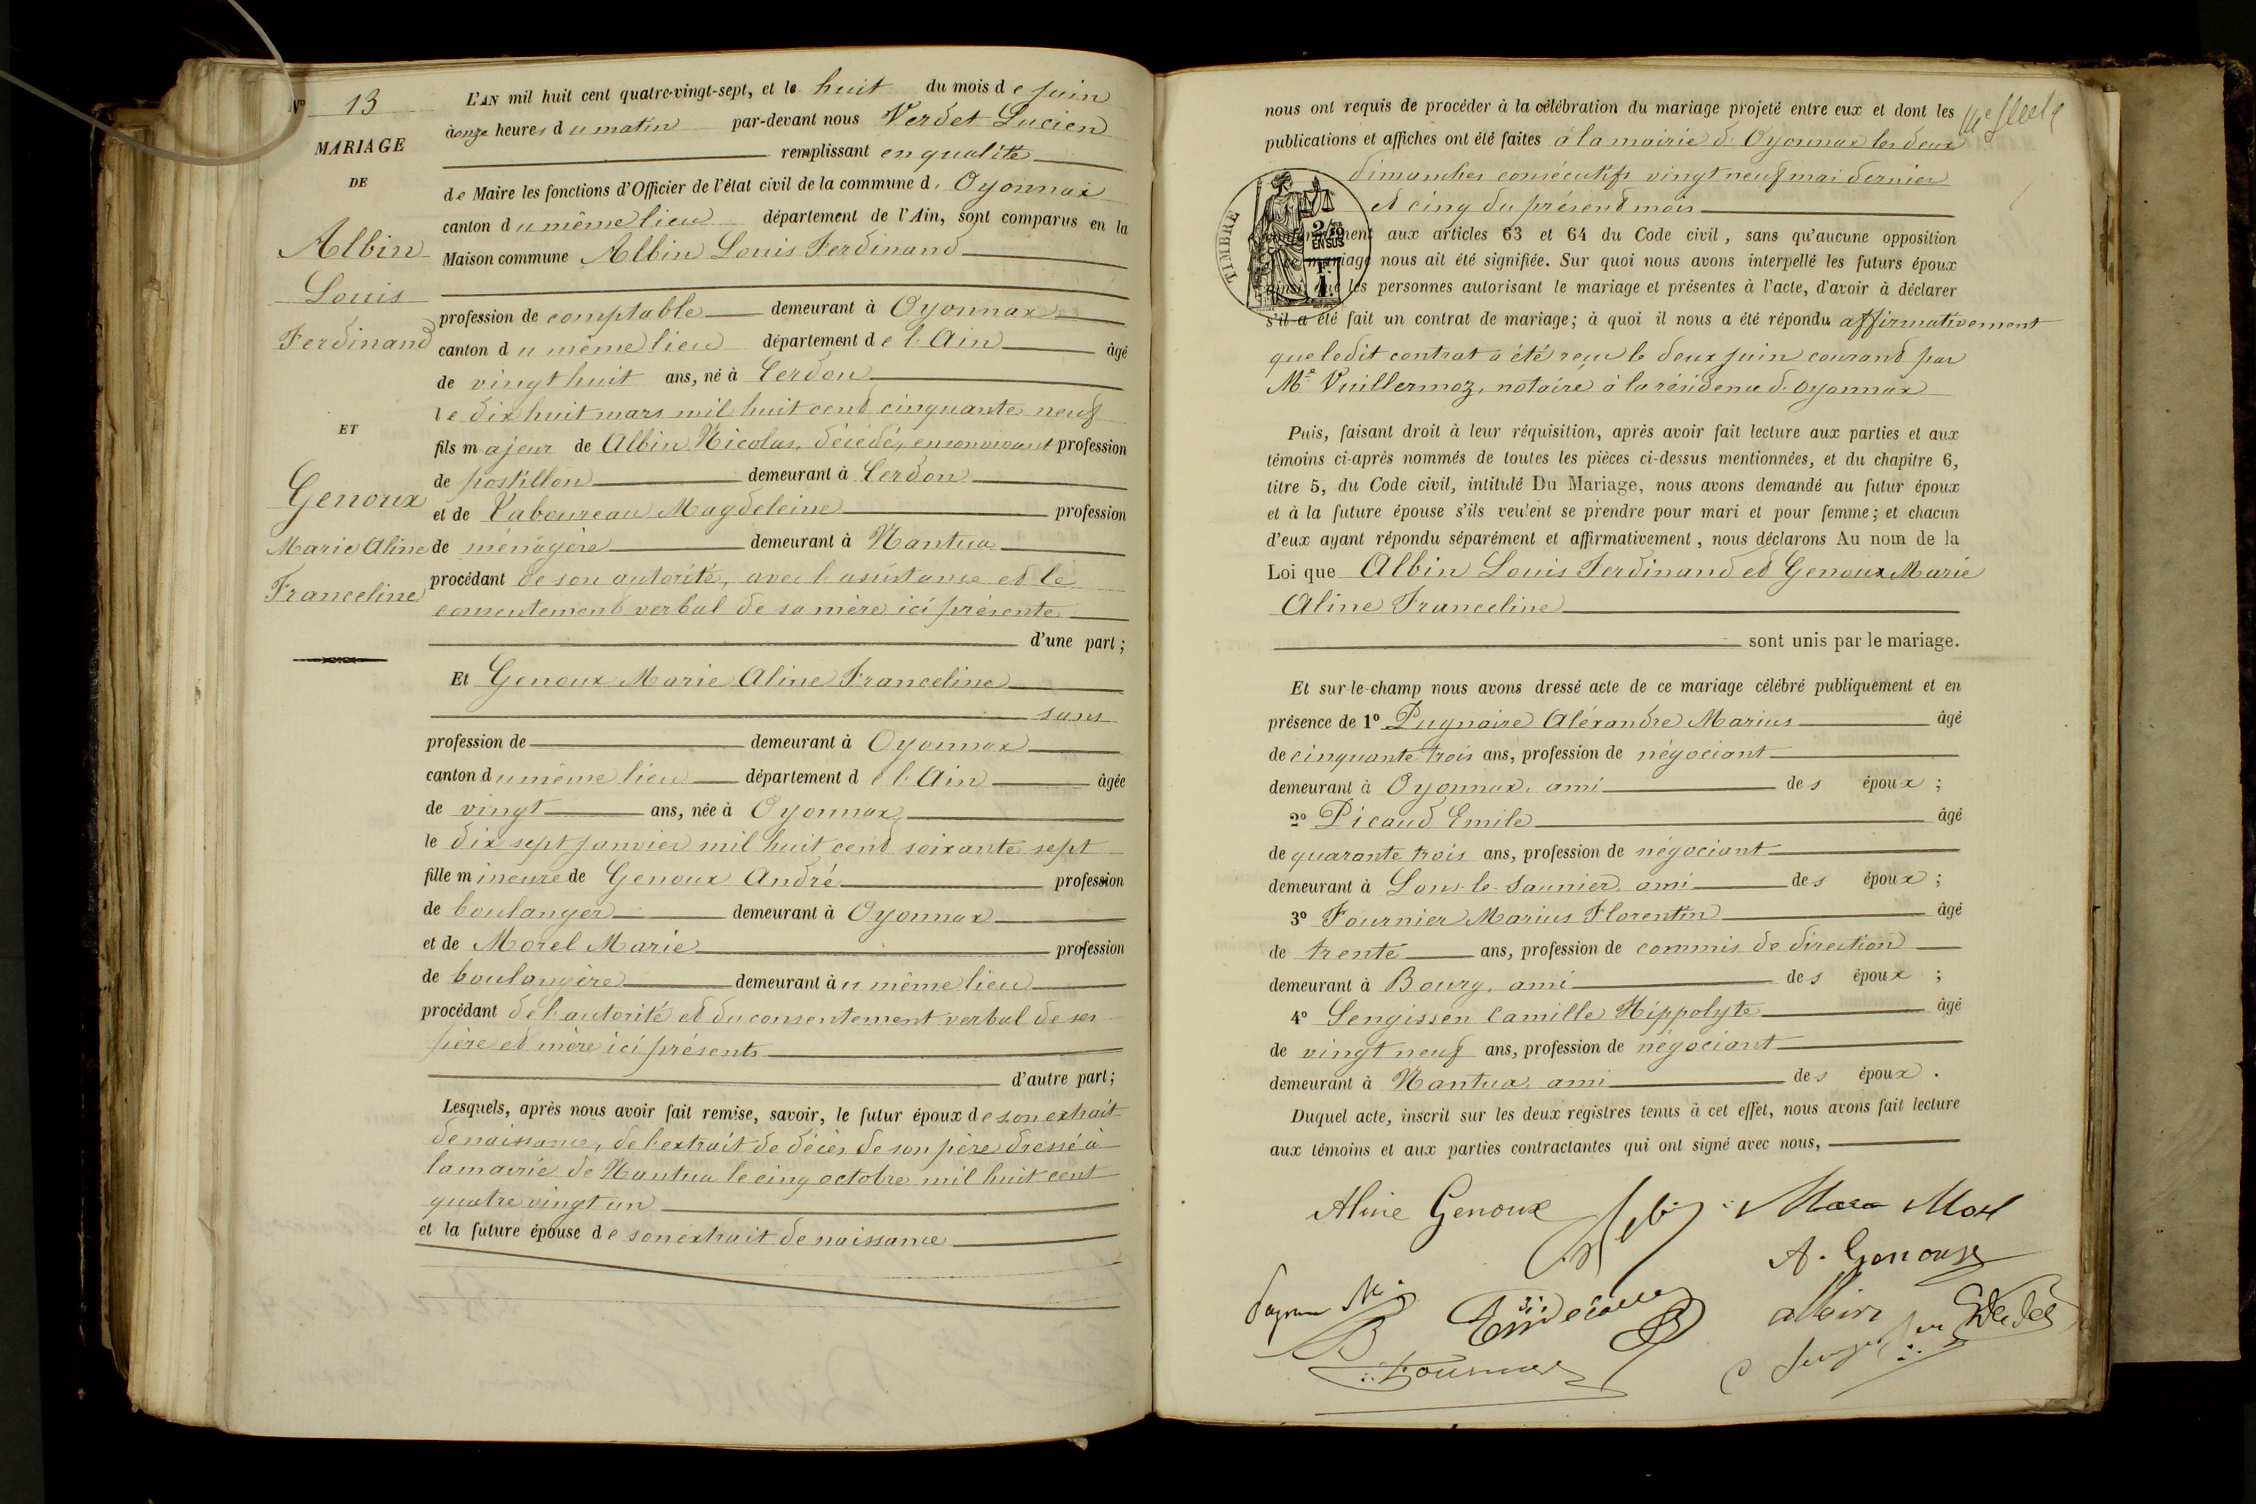 No 13
MARIAGE
DE
Albin
Louis
Ferdinand
ET
Genoux
Marie Aline
Franceline
L'AN mil huit cent quatre-vingt-sept, et le huit du mois de juin
à onze heures du matin par-devant nous Verdet Lucien
remplissant en qualité
de Maire les fonctions d'Officier de l'état civil de la commune d. Oyonnax
canton du même lieu département de l'Ain, sont comparus en la
Maison commune Albin Louis Ferdinand
profession de comptable demeurant à Oyonnax
canton du même lieu département de l'Ain âgé
de vingt huit ans, né à Cerdon
le dix huit mars mil huit cent cinquante neuf
fils majeur de Albin Nicolas, décédé, en son vivant profession
de postillon demeurant à Cerdon
et de Vaboureau Magdeleine profession
de ménagère demeurant à Nantua
procédant de son autorité, avec l'assistance et le
consentement verbal de sa mère ici présente
d'une part;
Et Genoux Marie Aline Franceline
sans
profession de demeurant à Oyonnax
canton du même lieu département de l'Ain âgée
de vingt ans, née à Oyonnax,
le dix sept janvier mil huit cent soixante sept
fille mineure de Genoux André profession
de boulanger demeurant à Oyonnax
et de Morel Marie profession
de boulangère demeurant au même lieu
procédant de l'autorité et du consentement verbal de ses
père et mère ici présents
d'autre part;
Lesquels, après nous avoir fait remise, savoir, le futur époux de son extrait
de naissance, de l'extrait de décès de son père dressé à
la mairie de Nantua le cinq octobre mil huit cent
quatre vingt un
et la future épouse de son extrait de naissance
nous ont requis de procéder à la célébration du mariage projeté entre eux et dont les
publications et affiches ont été faites à la mairie d. Oyonnax les deux
dimanches consécutifs vingt neuf mai dernier
et cinq du présent mois
TIMBRE
2/10
EN SUS
conformément aux articles 63 et 64 du Code civil, sans qu'aucune opposition
à ce mariage nous ait été signifiée. Sur quoi nous avons interpellé les futurs époux
ainsi que les personnes autorisant le mariage et présentes à l'acte, d'avoir à déclarer
s'il a été fait un contrat de mariage; à quoi il nous a été répondu affirmativement
que ledit contrat a été reçu le deux juin courant par
Me Vuillermoz, notaire à la résidence d. Oyonnax
Puis, faisant droit à leur réquisition, après avoir fait lecture aux parties et aux
témoins ci-après nommés de toutes les pièces ci-dessus mentionnées, et du chapitre 6,
titre 5, du Code civil, intitulé Du Mariage, nous avons demandé au futur époux
et à la future épouse s'ils veulent se prendre pour mari et pour femme; et chacun
d'eux ayant répondu séparément et affirmativement, nous déclarons Au nom de la
Loi que Albin Louis Ferdinand et Genoux Marie
Aline Franceline
sont unis par le mariage.
Et sur-le-champ nous avons dressé acte de ce mariage célébré publiquement et en
présence de 1º Pugnaire Aléxandre Marius âgé
de cinquante trois ans, profession de négociant
demeurant à Oyonnax, ami des époux ;
2º Picaud Emile âgé
de quarante trois ans, profession de négociant
demeurant à Lons-le-Saunier, ami des époux ;
3º Fournier Marius Florentin âgé
de trente ans, profession de commis de direction
demeurant à Bourg, ami des époux ;
4º Sengissen Camille Hippolyte âgé
de vingt neuf ans, profession de négociant
demeurant à Nantua, ami des époux.
Duquel acte, inscrit sur les deux registres tenus à cet effet, nous avons fait lecture
aux témoins et aux parties contractantes qui ont signé avec nous,
Aline Genoux
A. Genoux
albin
Fournier